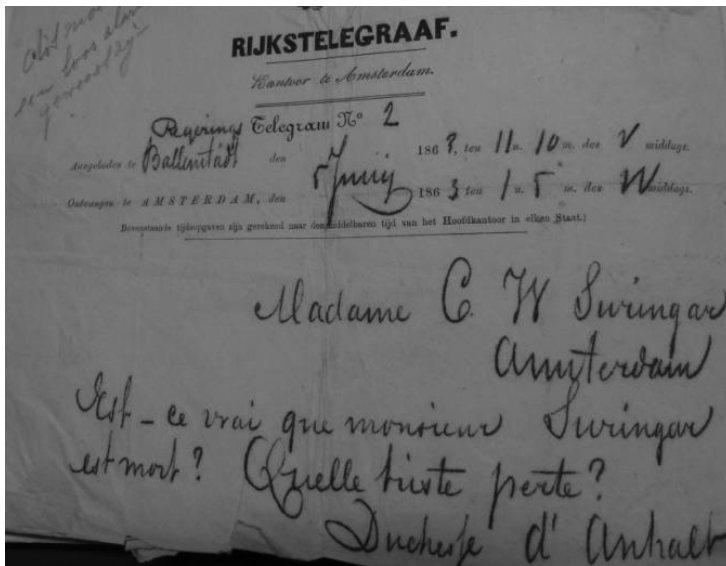 een loos alarm
RIJKSTELEGRAAF.
Kantoor te Amsterdam.
Regerings Telegram No 2
Aangeboden te Ballenstädt den 5 Junij 1863, ten 11 u. 10 m. des V middags.
Ontvangen te AMSTERDAM, den 1863 ten 1 u. 5 m. des N middags.
Bovenstaande tijdsopgaven zijn gerekend naar den middelbaren tijd van het Hoofdkantoor in elken Staat.)
Madame C. W Suringar
Amsterdam
Est-ce vrai que monsieur Suringar
est mort? Quelle triste perte?
Duchesse d'Anhalt